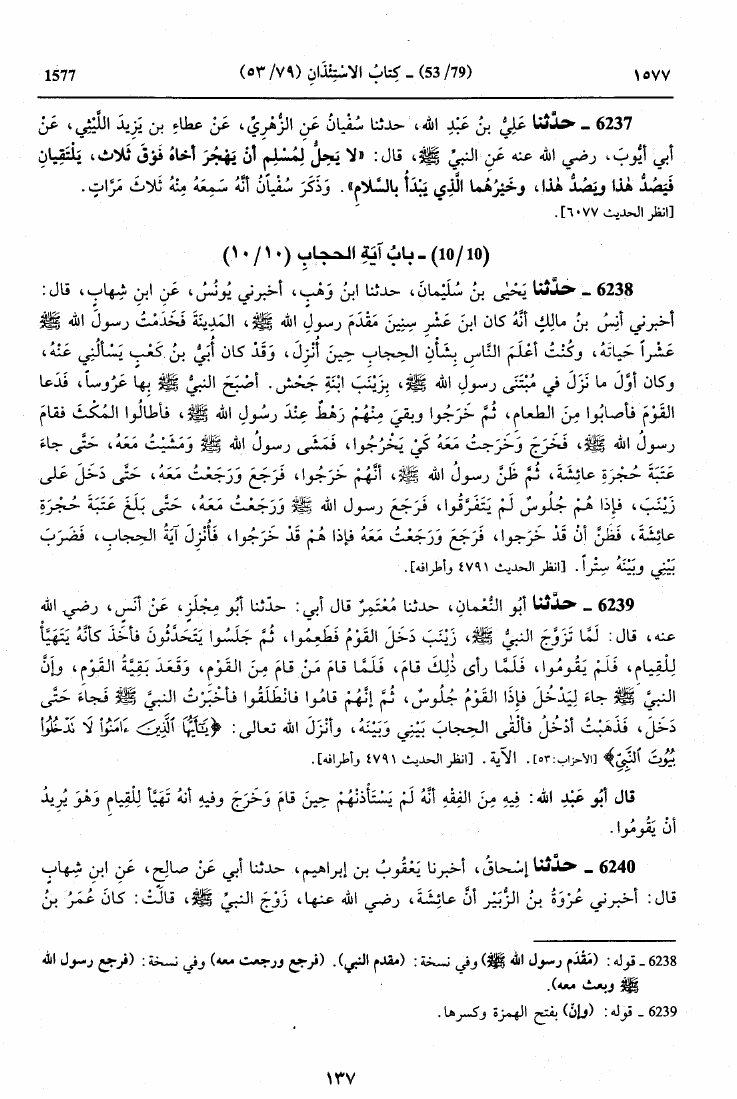 ١٥٧٧ (53/79) ـ كِتابُ الاسْتِئْذَانِ (٥٣/٧٩) 1577
6237 ـ حدّثنا عَلِيُّ بنُ عَبْدِ الله، حدثنا سُفْيانُ عَنِ الزُّهْرِيِّ، عَنْ عطاءِ بن يَزِيدَ اللَّيْثِي، عَنْ
أبي أَيُّوبَ، رضي الله عنه عَنِ النبيِّ ﷺ، قال: «لا يَحِلُّ لِمُسْلِمٍ أنْ يَهْجُرَ أخاهُ فَوْقَ ثَلاث، يَلْتَقِيانِ
فَيَصُدُّ هٰذا ويَصُدُّ هٰذا، وخَيْرُهُما الَّذِي يَبْدَأُ بالسَّلامِ». وَذَكَرَ سُفْيانُ أنَّهُ سَمِعَهُ مِنْهُ ثَلاثَ مَرَّاتٍ.
[انظر الحديث ٦٠٧٧].
(10/10) ـ بابُ آيَةِ الحجابِ (١٠/١٠)
6238 ـ حدّثنا يَحْيَى بنُ سُلَيْمانَ، حدثنا ابنُ وَهْبٍ، أخبرني يُونُسُ، عَنِ ابنِ شِهابٍ، قال:
أخبرني أنَسُ بنُ مالِكٍ أنَّهُ كان ابنَ عَشْرِ سِنِينَ مَقْدَمَ رسولِ الله ﷺ، المَدِينَةَ فَخَدَمْتُ رسولَ الله ﷺ
عَشْراً حَياتَهُ، وكُنْتُ أعْلَمَ النَّاسِ بِشَأْنِ الحِجابِ حِينَ أُنْزِلَ، وَقَدْ كان أُبَيُّ بنُ كَعْبٍ يَسْألُنِي عَنْهُ،
وكان أوَّلَ ما نَزَلَ في مُبْتَنَى رسولِ الله ﷺ، بِزَيْنَبَ ابْنَةِ جَحْش. أصْبَحَ النبيُّ ﷺ بِها عَرُوساً، فَدَعا
القَوْمَ فأصابُوا مِنَ الطعامِ، ثُمَّ خَرَجُوا وبقيَ مِنْهُمْ رَهْطٌ عِنْدَ رسُولِ الله ﷺ، فأطالُوا المُكْثَ فقامَ
رسولُ الله ﷺ، فَخَرَجَ وَخَرَجتُ مَعَهُ كَيْ يَخْرُجُوا، فَمَشَى رسولُ الله ﷺ وَمَشَيْتُ مَعَهُ، حَتَّى جاءَ
عَتَبَةَ حُجْرَةِ عائِشَةَ، ثُمَّ ظَنَّ رسولُ الله ﷺ، أنَّهُمْ خَرَجُوا، فَرَجَعَ وَرَجَعْتُ مَعَهُ، حَتَّى دَخَلَ عَلى
زَيْنَبَ، فإذا هُمْ جُلُوسٌ لَمْ يَتَفَرَّقُوا، فَرَجَعَ رسول الله ﷺ وَرَجَعْتُ مَعَهُ، حَتَّى بَلَغَ عَتَبَةَ حُجْرَةِ
عائِشَةَ، فَظَنَّ أنْ قَدْ خَرَجوا، فَرَجَعَ وَرَجَعْتُ مَعَهُ فإذا هُمْ قَدْ خَرَجُوا، فَأُنْزِلَ آيَةُ الحِجابِ، فَضَرَبَ
بَيْنِي وبَيْنَهُ سِتْراً. [انظر الحديث ٤٧٩١ وأطرافه].
6239 ـ حدّثنا أبُو النُّعْمانِ، حدثنا مُعْتَمِرٌ قال أبي: حدّثنا أبُو مِجْلَزٍ، عَنْ أنَسٍ، رضي الله
عنه، قال: لَمَّا تَزَوَّجَ النبيُّ ﷺ، زَيْنَبَ دَخَلَ القَوْمُ فَطَعِمُوا، ثُمَّ جَلَسُوا يَتَحَدَّثُونَ فأخَذَ كأنَّهُ يَتَهَيَّأُ
لِلْقِيامِ، فَلَمْ يَقُومُوا، فَلَمَّا رأى ذٰلِكَ قامَ، فَلَمَّا قامَ مَنْ قامَ مِنَ القَوْمِ، وَقَعَدَ بَقِيَّةُ القَوْمِ، وإنَّ
النبيَّ ﷺ جاءَ لِيَدْخُلَ فإذَا القَوْمُ جُلُوسٌ، ثُمَّ إنَّهُمْ قامُوا فانْطَلَقُوا فأخْبَرْتُ النبيَّ ﷺ فَجاءَ حَتَّى
دَخَلَ، فَذَهَبْتُ أدْخُلُ فألْقَى الحِجابَ بَيْنِي وَبَيْنَهُ، وأنْزَلَ الله تعالى: ﴿يَٰٓأَيُّهَا ٱلَّذِينَ ءَامَنُوا۟ لَا نَدْخُلُوا۟
بُيُوتَ ٱلنَّبِىِّ﴾ [الأحزاب:٥٣]. الآية. [انظر الحديث ٤٧٩١ وأطرافه].
قال أبُو عَبْدِ الله: فِيهِ مِنَ الفِقْهِ أنَّهُ لَمْ يَسْتَأْذِنْهُمْ حِينَ قامَ وَخَرَجَ وفيهِ أنهُ تَهَيَّأ لِلْقِيامِ وَهْوَ يُرِيدُ
أنْ يَقُومُوا.
6240 ـ حدّثنا إسْحاقُ، أخبرنا يَعْقُوبُ بن إبراهيم، حدثنا أبي عَنْ صالِحٍ، عَنِ ابنِ شِهابٍ
قال: أخبرني عُرْوَةُ بنُ الزُّبَيْرِ أنَّ عائِشَةَ، رضي الله عنها، زَوْجَ النبيِّ ﷺ، قالَتْ: كانَ عُمَرُ بنُ
6238 ـ قوله: (مَقْدَم رسول الله ﷺ) وفي نسخة: (مقدم النبي). (فرجع ورجعت معه) وفي نسخة: (فرجع رسول الله
ﷺ وبعث معه).
6239 ـ قوله: (وإنْ) بفتح الهمزة وكسرها.
١٣٧